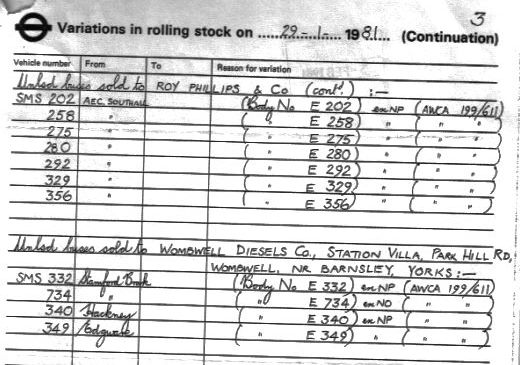 3
Variations in rolling stock on ......29-1-.... 1981... (Continuation)
Vehicle number From To Reason for variation
Unlsd buses sold to ROY PHILLIPS & Co (cont'd) :—
SMS 202 AEC. SOUTHALL (Body No E 202) ex NP (AWCA 199/611)
258 " ( " E 258) " ( " " )
275 " ( " E 275) " ( " " )
280 " ( " E 280) " ( " " )
292 " ( " E 292) " ( " " )
329 " ( " E 329) " ( " " )
356 " ( " E 356) " ( " " )
Unlsd buses sold to WOMBWELL DIESELS Co., STATION VILLA, PARK HILL RD,
WOMBWELL, NR BARNSLEY, YORKS :—
SMS 332 Stamford Brook (Body No E 332) ex NP (AWCA 199/611)
734 " ( " E 734) ex NO ( " " )
340 Hackney ( " E 340) ex NP ( " " )
349 Edgware ( " E 349) " ( " " )